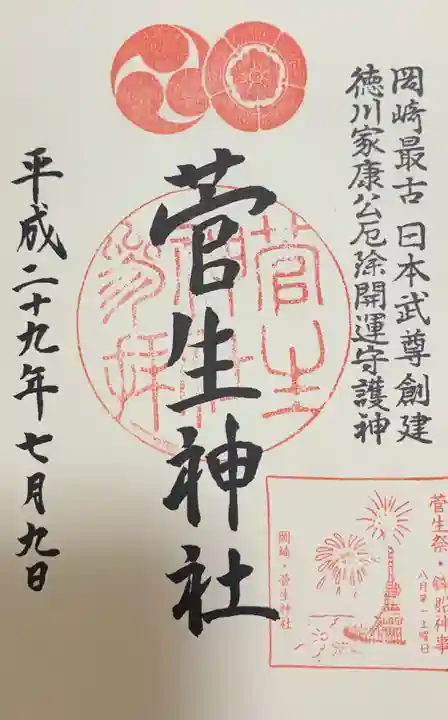 岡崎最古 日本武尊創建
徳川家康公厄除開運守護神
菅生神社
菅生
神社
参拝
平成二十九年七月九日
菅生祭・鉾船神事
八月第一土曜日
岡崎・菅生神社